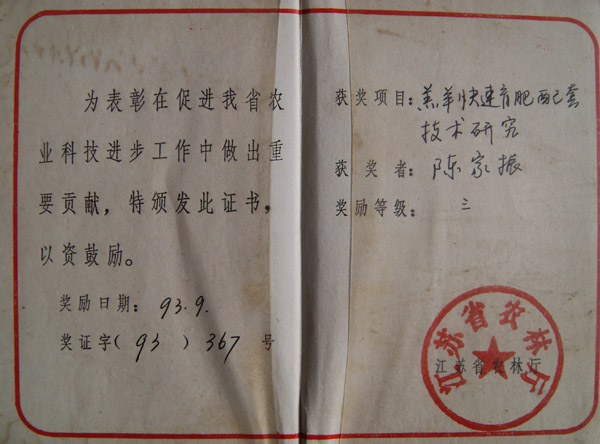 为表彰在促进我省农
业科技进步工作中做出重
要贡献，特颁发此证书，
以资鼓励。
奖励日期：93.9.
奖证字(93)367号
获奖项目：羔羊快速育肥配套
技术研究
获奖者：陈家振
奖励等级：三
江苏省农林厅
江苏省农林厅